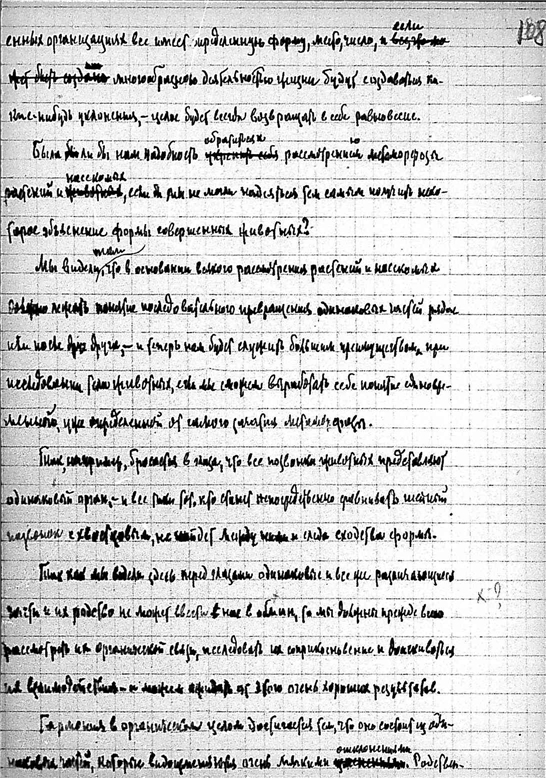 188
енных организациях все имеет определенную форму, место, число, и если
многообразною деятельностью жизни будут создаваться ка-
кие-нибудь уклонения, – целое будет всегда возвращать в себе равновесие.
Была бы ли бы нам надобность обратиться рассмотрению метаморфозы
растений и насекомых, если б мы не могли надеяться тем самым получить неко-
торое объяснение формы совершенных животных?
Мы видели там, что в основании всякого рассмотрения растений и насекомых
должно лежать понятие последовательного превращения одинаковых частей рядом
или после друг друга, – и теперь нам будет служить большим преимуществом, при
исследовании тела животных, если мы сможем выработать себе понятие одновре-
менной, уже определенной от самого зачатия метаморфозы.
Так, например, бросается в глаза, что все позвонки животных представляют
одинаковый орган, – и все таки тот, кто станет непосредственно сравнивать шейный
позвонок с хвостовым, не найдет между ними и следа сходства формы.
Так как мы видели здесь перед глазами одинаковые и все же различающиеся
части и их родство не может ввести нас в обман, то мы должны прежде всего
рассмотреть их органической связи, исследовать их соприкосновение и доискиваться
их взаимодействия – и можем ожидать от этого очень хороших результатов.
х ?
Гармония в органическом целом достигается тем, что оно состоит из оди-
наковых частей, которые видоизменяются очень мягкими отклонениями. Родствен-